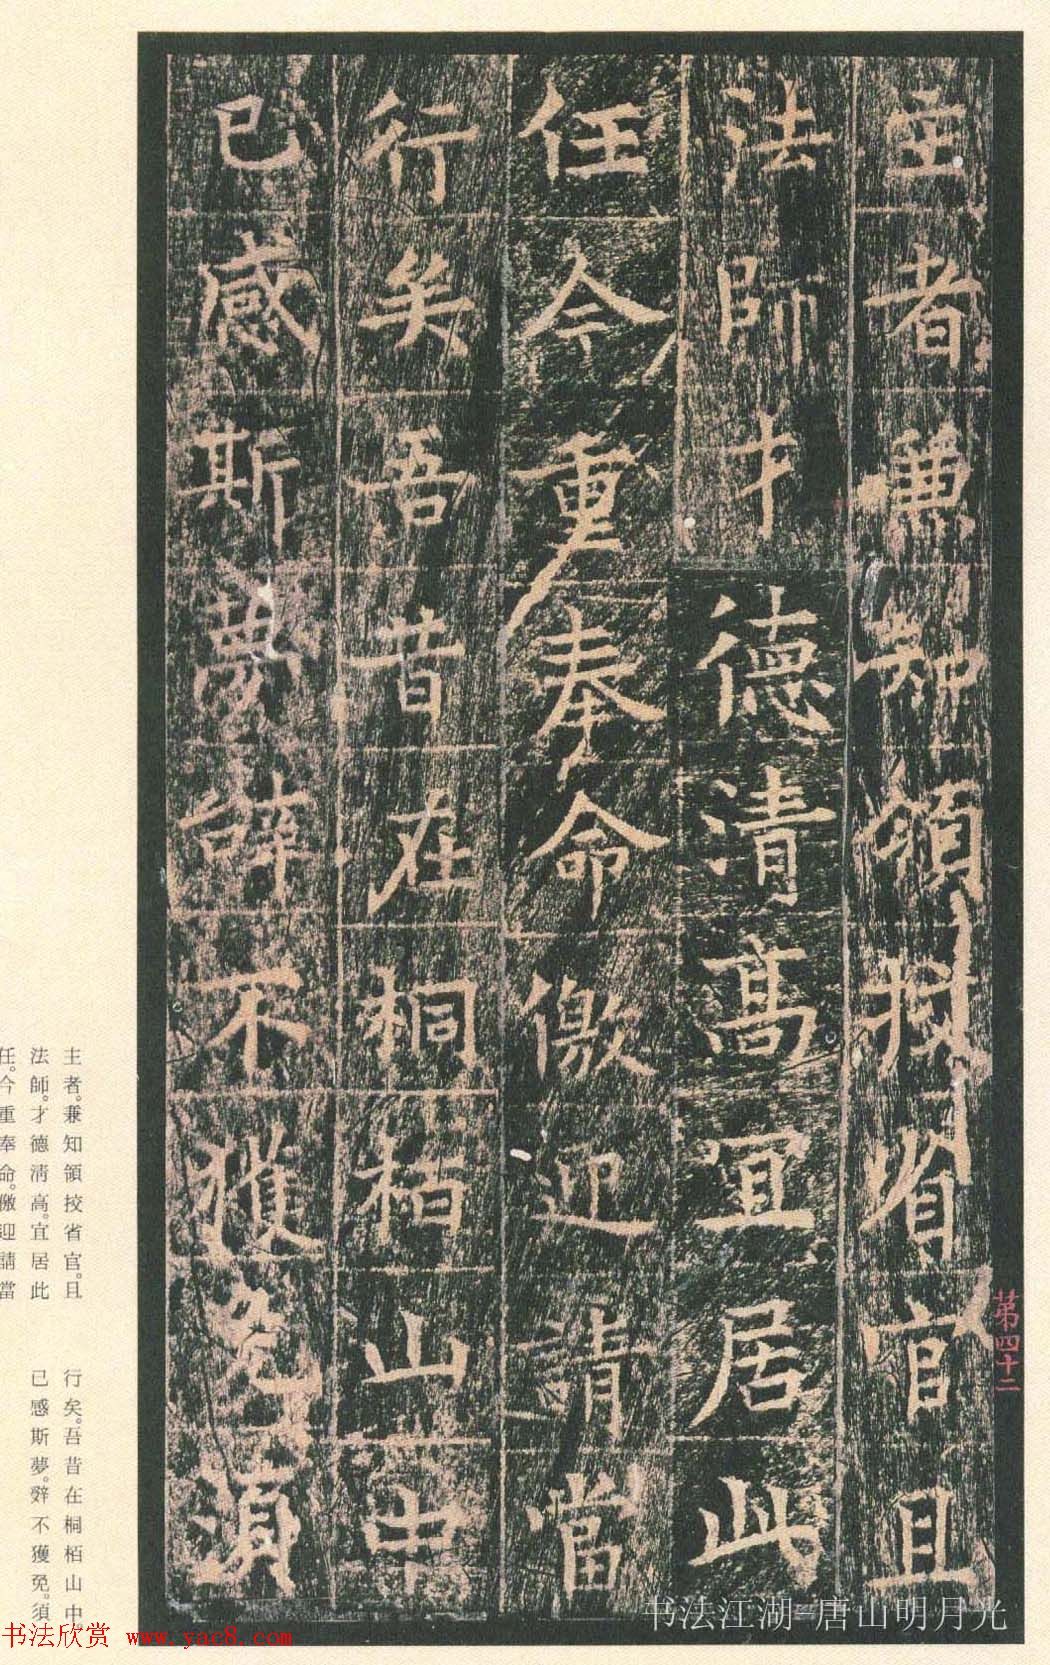 主者兼知領挍省官且
法師才德清高宜居此
任今重奉命儌迎請當
行矣吾昔在桐栢山中
已感斯夢辤不獲免須
第四十二
主者。兼知領挍省官。且
法師。才德清高。宜居此
任。今重奉命。儌迎請當
行矣。吾昔在桐栢山中。
已感斯夢。辤不獲免。須
书法江湖-唐山明月光
书法欣赏 www.yac8.com